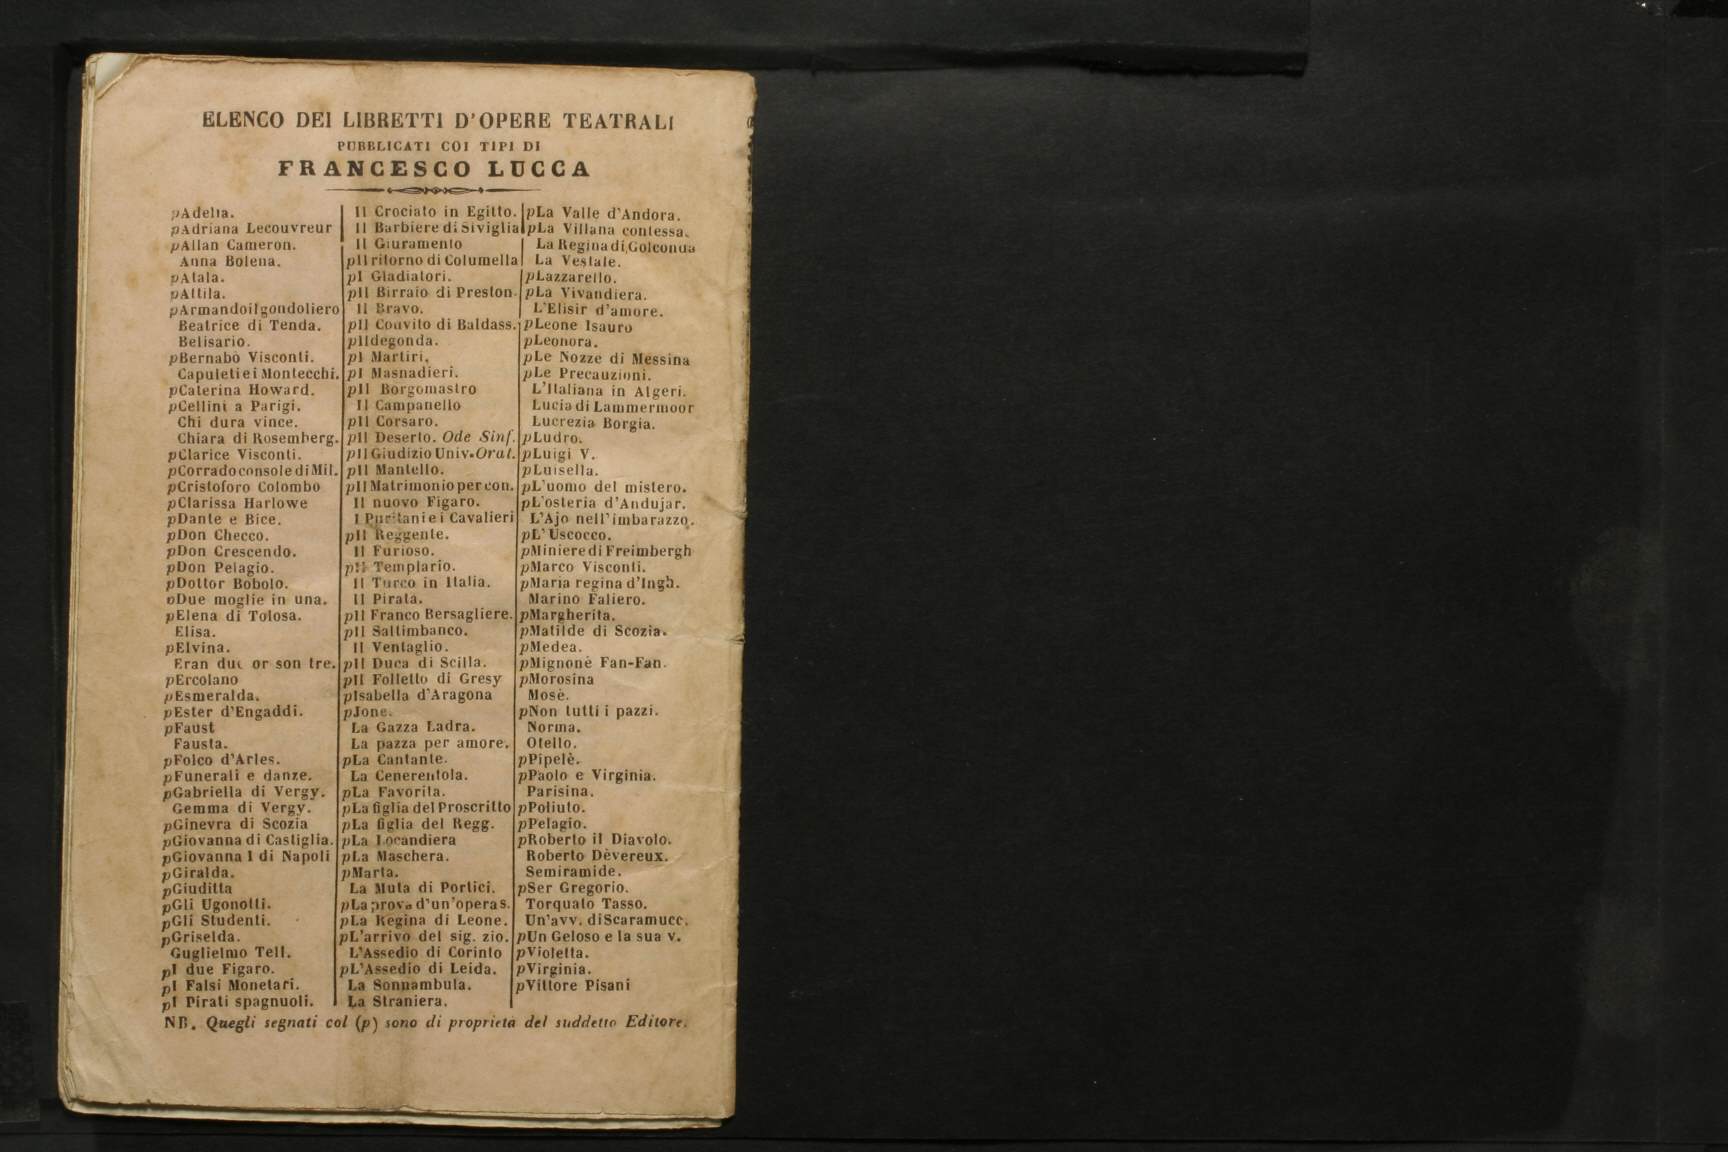 ELENCO DEI LIBRETTI D'OPERE TEATRALI
PUBBLICATI COI TIPI DI
FRANCESCO LUCCA
pAdelia.
pAdriana Lecouvreur
pAllan Cameron.
Anna Bolena.
pAtala.
pAttila.
pArmandoilgondoliero
Beatrice di Tenda.
Belisario.
pBernabò Visconti.
Capuleti e i Montecchi.
pCaterina Howard.
pCellini a Parigi.
Chi dura vince.
Chiara di Rosemberg.
pClarice Visconti.
pCorrado console di Mil.
pCristoforo Colombo
pClarissa Harlowe
pDante e Bice.
pDon Checco.
pDon Crescendo.
pDon Pelagio.
pDottor Bobolo.
pDue moglie in una.
pElena di Tolosa.
Elisa.
pElvina.
Eran due or son tre.
pErcolano
pEsmeralda.
pEster d'Engaddi.
pFaust
Fausta.
pFolco d'Arles.
pFunerali e danze.
pGabriella di Vergy.
Gemma di Vergy.
pGinevra di Scozia
pGiovanna di Castiglia.
pGiovanna I di Napoli
pGiralda.
pGiuditta
pGli Ugonotti.
pGli Studenti.
pGriselda.
Guglielmo Tell.
pI due Figaro.
pI Falsi Monetari.
pI Pirati spagnuoli.
Il Crociato in Egitto.
Il Barbiere di Siviglia
Il Giuramento
pIl ritorno di Columella
pI Gladiatori.
pIl Birraio di Preston.
Il Bravo.
pIl Convito di Baldass.
pIldegonda.
pI Martiri.
pI Masnadieri.
pIl Borgomastro
Il Campanello
pIl Corsaro.
pIl Deserto. Ode Sinf.
pIl Giudizio Univ. Orat.
pIl Mantello.
pIl Matrimonio per con.
Il nuovo Figaro.
I Puritani e i Cavalieri
pIl Reggente.
Il Furioso.
pIl Templario.
Il Turco in Italia.
Il Pirata.
pIl Franco Bersagliere.
pIl Saltimbanco.
Il Ventaglio.
pIl Duca di Scilla.
pIl Folletto di Gresy
pIsabella d'Aragona
pJone.
La Gazza Ladra.
La pazza per amore.
pLa Cantante.
La Cenerentola.
pLa Favorita.
pLa figlia del Proscritto
pLa figlia del Regg.
pLa Locandiera
pLa Maschera.
pMarta.
La Muta di Portici.
pLa prova d'un'opera s.
pLa Regina di Leone.
pL'arrivo del sig. zio.
L'Assedio di Corinto
pL'Assedio di Leida.
La Sonnambula.
La Straniera.
pLa Valle d'Andora.
pLa Villana contessa.
La Regina di Golconda
La Vestale.
pLazzarello.
pLa Vivandiera.
L'Elisir d'amore.
pLeone Isauro
pLeonora.
pLe Nozze di Messina
pLe Precauzioni.
L'Italiana in Algeri.
Lucia di Lammermoor
Lucrezia Borgia.
pLudro.
pLuigi V.
pLuisella.
pL'uomo del mistero.
pL'osteria d'Andujar.
L'Ajo nell'imbarazzo.
pL'Uscocco.
pMiniere di Freimbergh
pMarco Visconti.
pMaria regina d'Ingh.
Marino Faliero.
pMargherita.
pMatilde di Scozia.
pMedea.
pMignonè Fan-Fan.
pMorosina
Mosè.
pNon tutti i pazzi.
Norma.
Otello.
pPipelè.
pPaolo e Virginia.
Parisina.
pPoliuto.
pPelagio.
pRoberto il Diavolo.
Roberto Dèvereux.
Semiramide.
pSer Gregorio.
Torquato Tasso.
Un'avv. di Scaramucc.
pUn Geloso e la sua v.
pVioletta.
pVirginia.
pVittore Pisani
NB. Quegli segnati col (p) sono di proprietà del suddetto Editore.